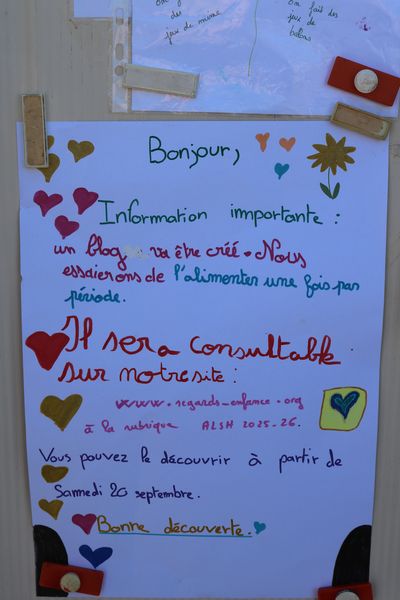 on fait des
des
jeux de
jeu de mime
Bonjour,
Information importante :
un blog va être créé. Nous
essaierons de l'alimenter une fois par
période.
Il sera consultable
sur notre site :
www.regards-enfance.org
à la rubrique ALSH 2025-26.
Vous pouvez le découvrir à partir de
Samedi 20 septembre.
Bonne découverte.